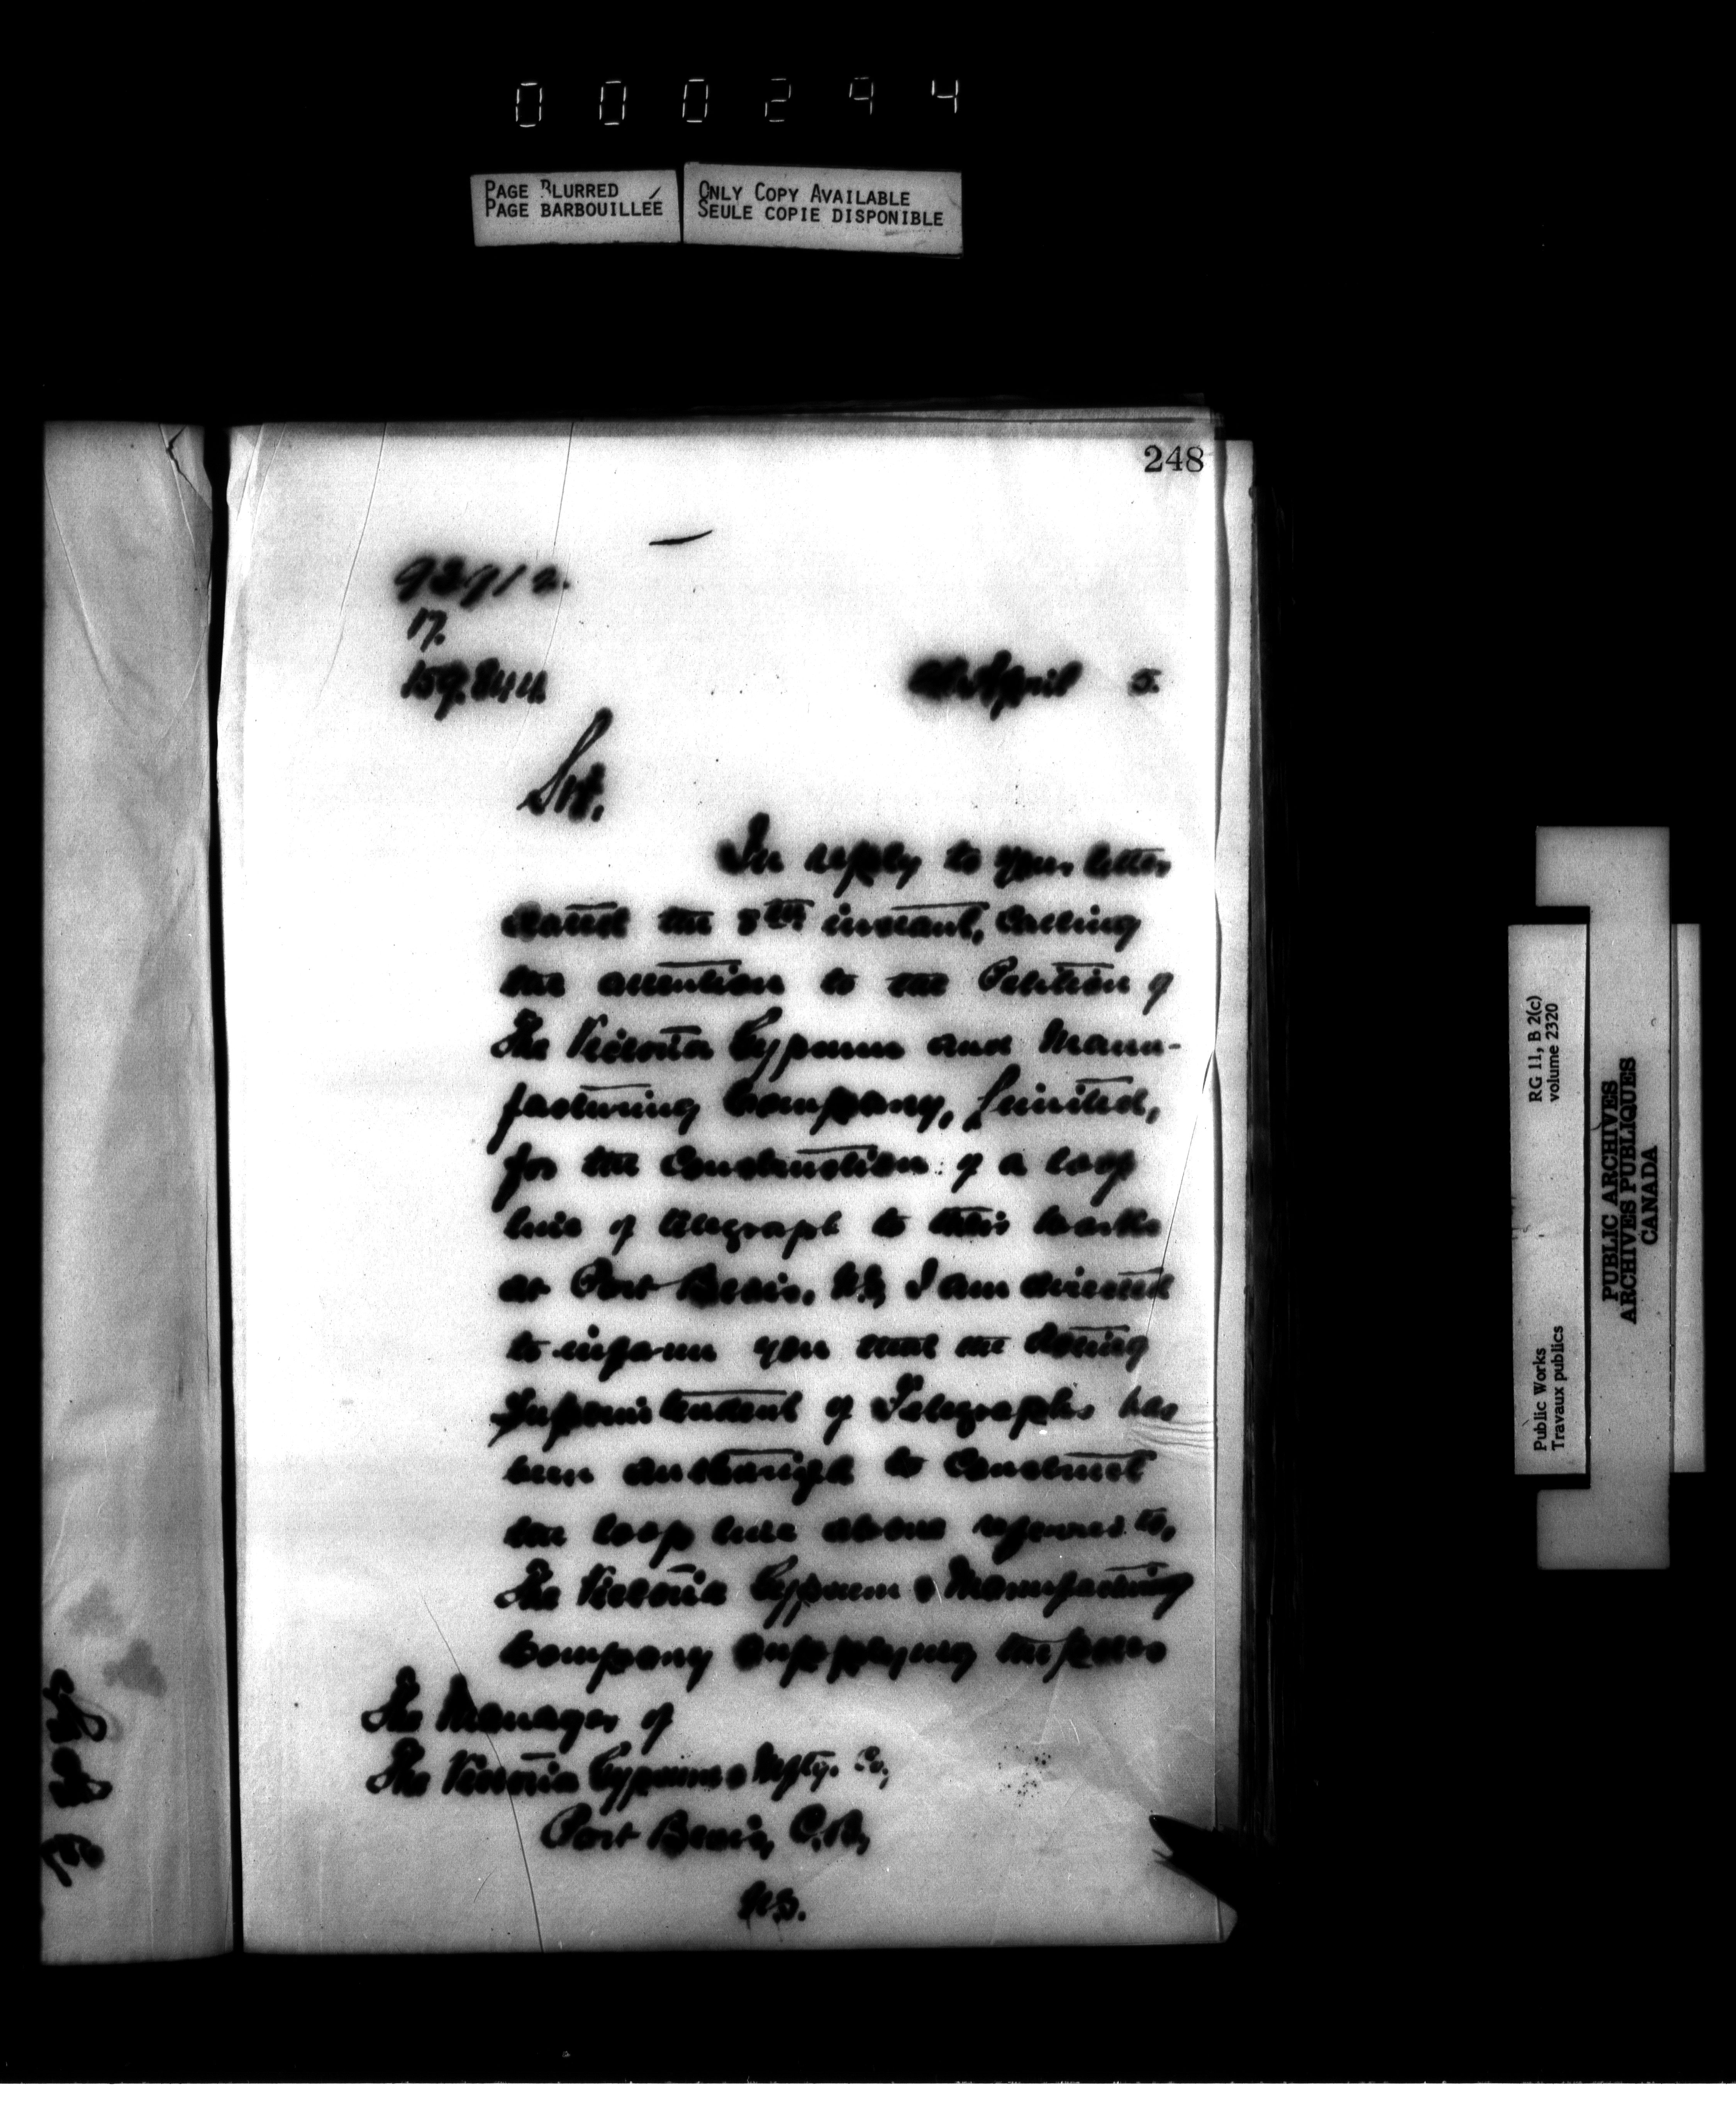 000294
PAGE BLURRED
PAGE BARBOUILLÉE
ONLY COPY AVAILABLE
SEULE COPIE DISPONIBLE
248
93912
17.
159,844
April 5.
Sir,
In reply to your letter
dated the 8th instant, calling
the attention to the Petition of
The Victoria Gypsum and Manu-
facturing Company, Limited,
for the construction of a loop
line of telegraph to their works
at Port Bevis, N.S, I am directed
to inform you that the Acting
Superintendent of Telegraphs has
been authorized to construct
the loop line above referred to,
The Victoria Gypsum & Manufacturing
Company supplying the poles
The Manager of
The Victoria Gypsum & Mfty. Co,
Port Bevis, C.B,
N.S.
Public Works
Travaux publics
RG 11, B 2(c)
volume 2320
PUBLIC ARCHIVES
ARCHIVES PUBLIQUES
CANADA